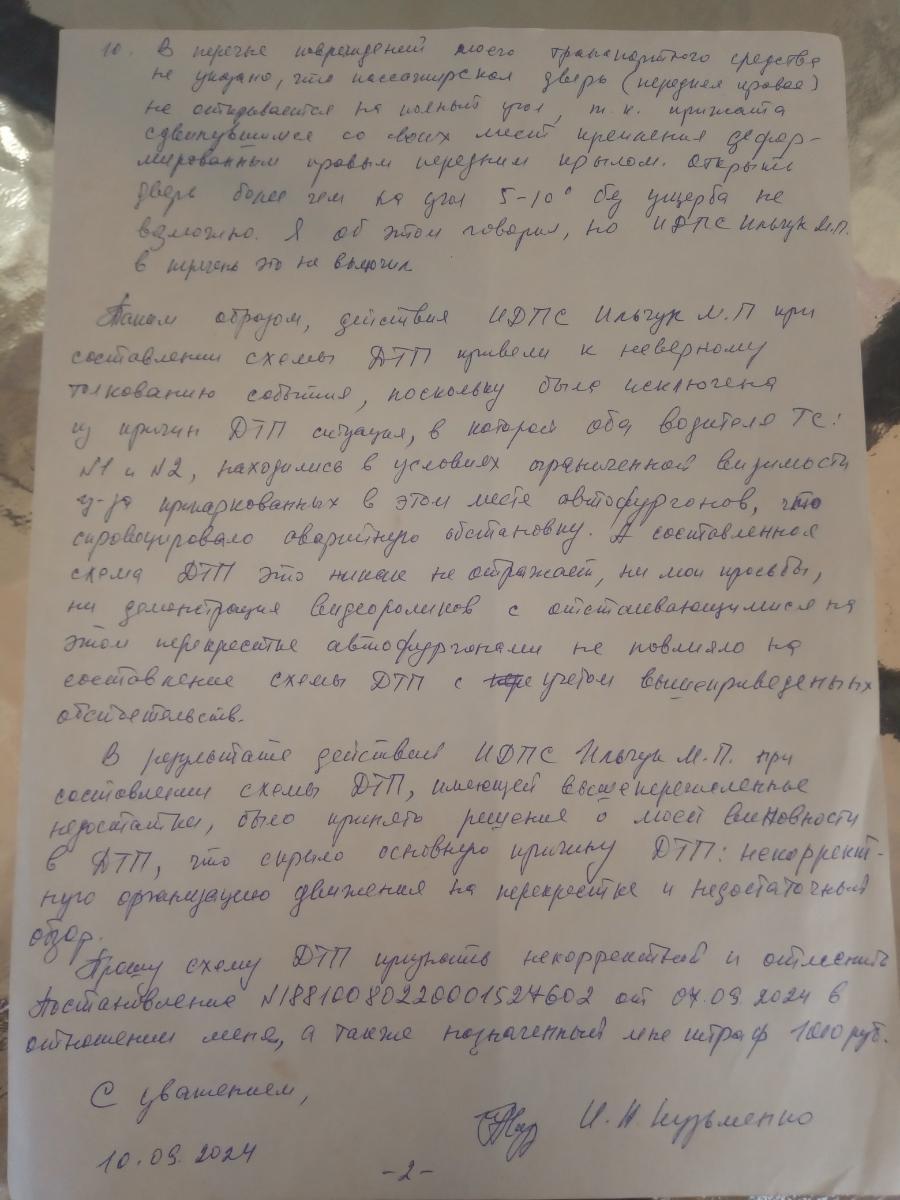 10. В перечне повреждений моего транспортного средства
не указано, что пассажирская дверь (передняя правая)
не открывается на полный угол, т.к. прижата
сдвинувшимся со своих мест крепления дефор-
мированным правым передним крылом. Открыть
дверь более чем на угол 5-10° без ущерба не
возможно. Я об этом говорил, но ИДПС Ильчук М.П.
в перечень это не включил
Таким образом, действия ИДПС Ильчук М.П при
составлении схемы ДТП привели к неверному
толкованию события, поскольку была исключена
из причин ДТП ситуация, в которой оба водителя ТС:
№1 и №2, находились в условиях ограниченной видимости
из-за припаркованных в этом месте автофургонов, что
спровоцировало аварийную обстановку. А составленная
схема ДТП это никак не отражает, ни мои просьбы,
ни демонстрация видеороликов с отстаивающимися на
этом перекрестке автофургонами не повлияло на
составление схемы ДТП с учетом вышеприведеных
обстоятельств.
В результате действий ИДПС Ильчук М.П. при
составлении схемы ДТП, имеющей вышеперечисленные
недостатки, было принято решение о моей виновности
в ДТП, что скрыло основную причину ДТП: некоррект-
ную организацию движения на перекрестке и недостаточный
обзор.
Прошу схему ДТП признать некорректной и отменить
Постановление №18810080220001524602 от 07.09.2024 в
отношении меня, а также назначенный мне штраф 1000 руб.
С уважением,
И.Н. Кузьменко
10.09.2024
-2-